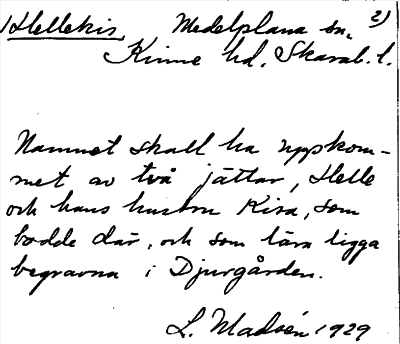 Hellekis, Medelplana sn. 2)
Kinne hd. Skarab. l.
Namnet skall ha uppkom-
met av två jättar, Helle
och hans hustru Kisa, som
bodde där, och som lära ligga
begravna i Djurgården.
L. Madsén 1929